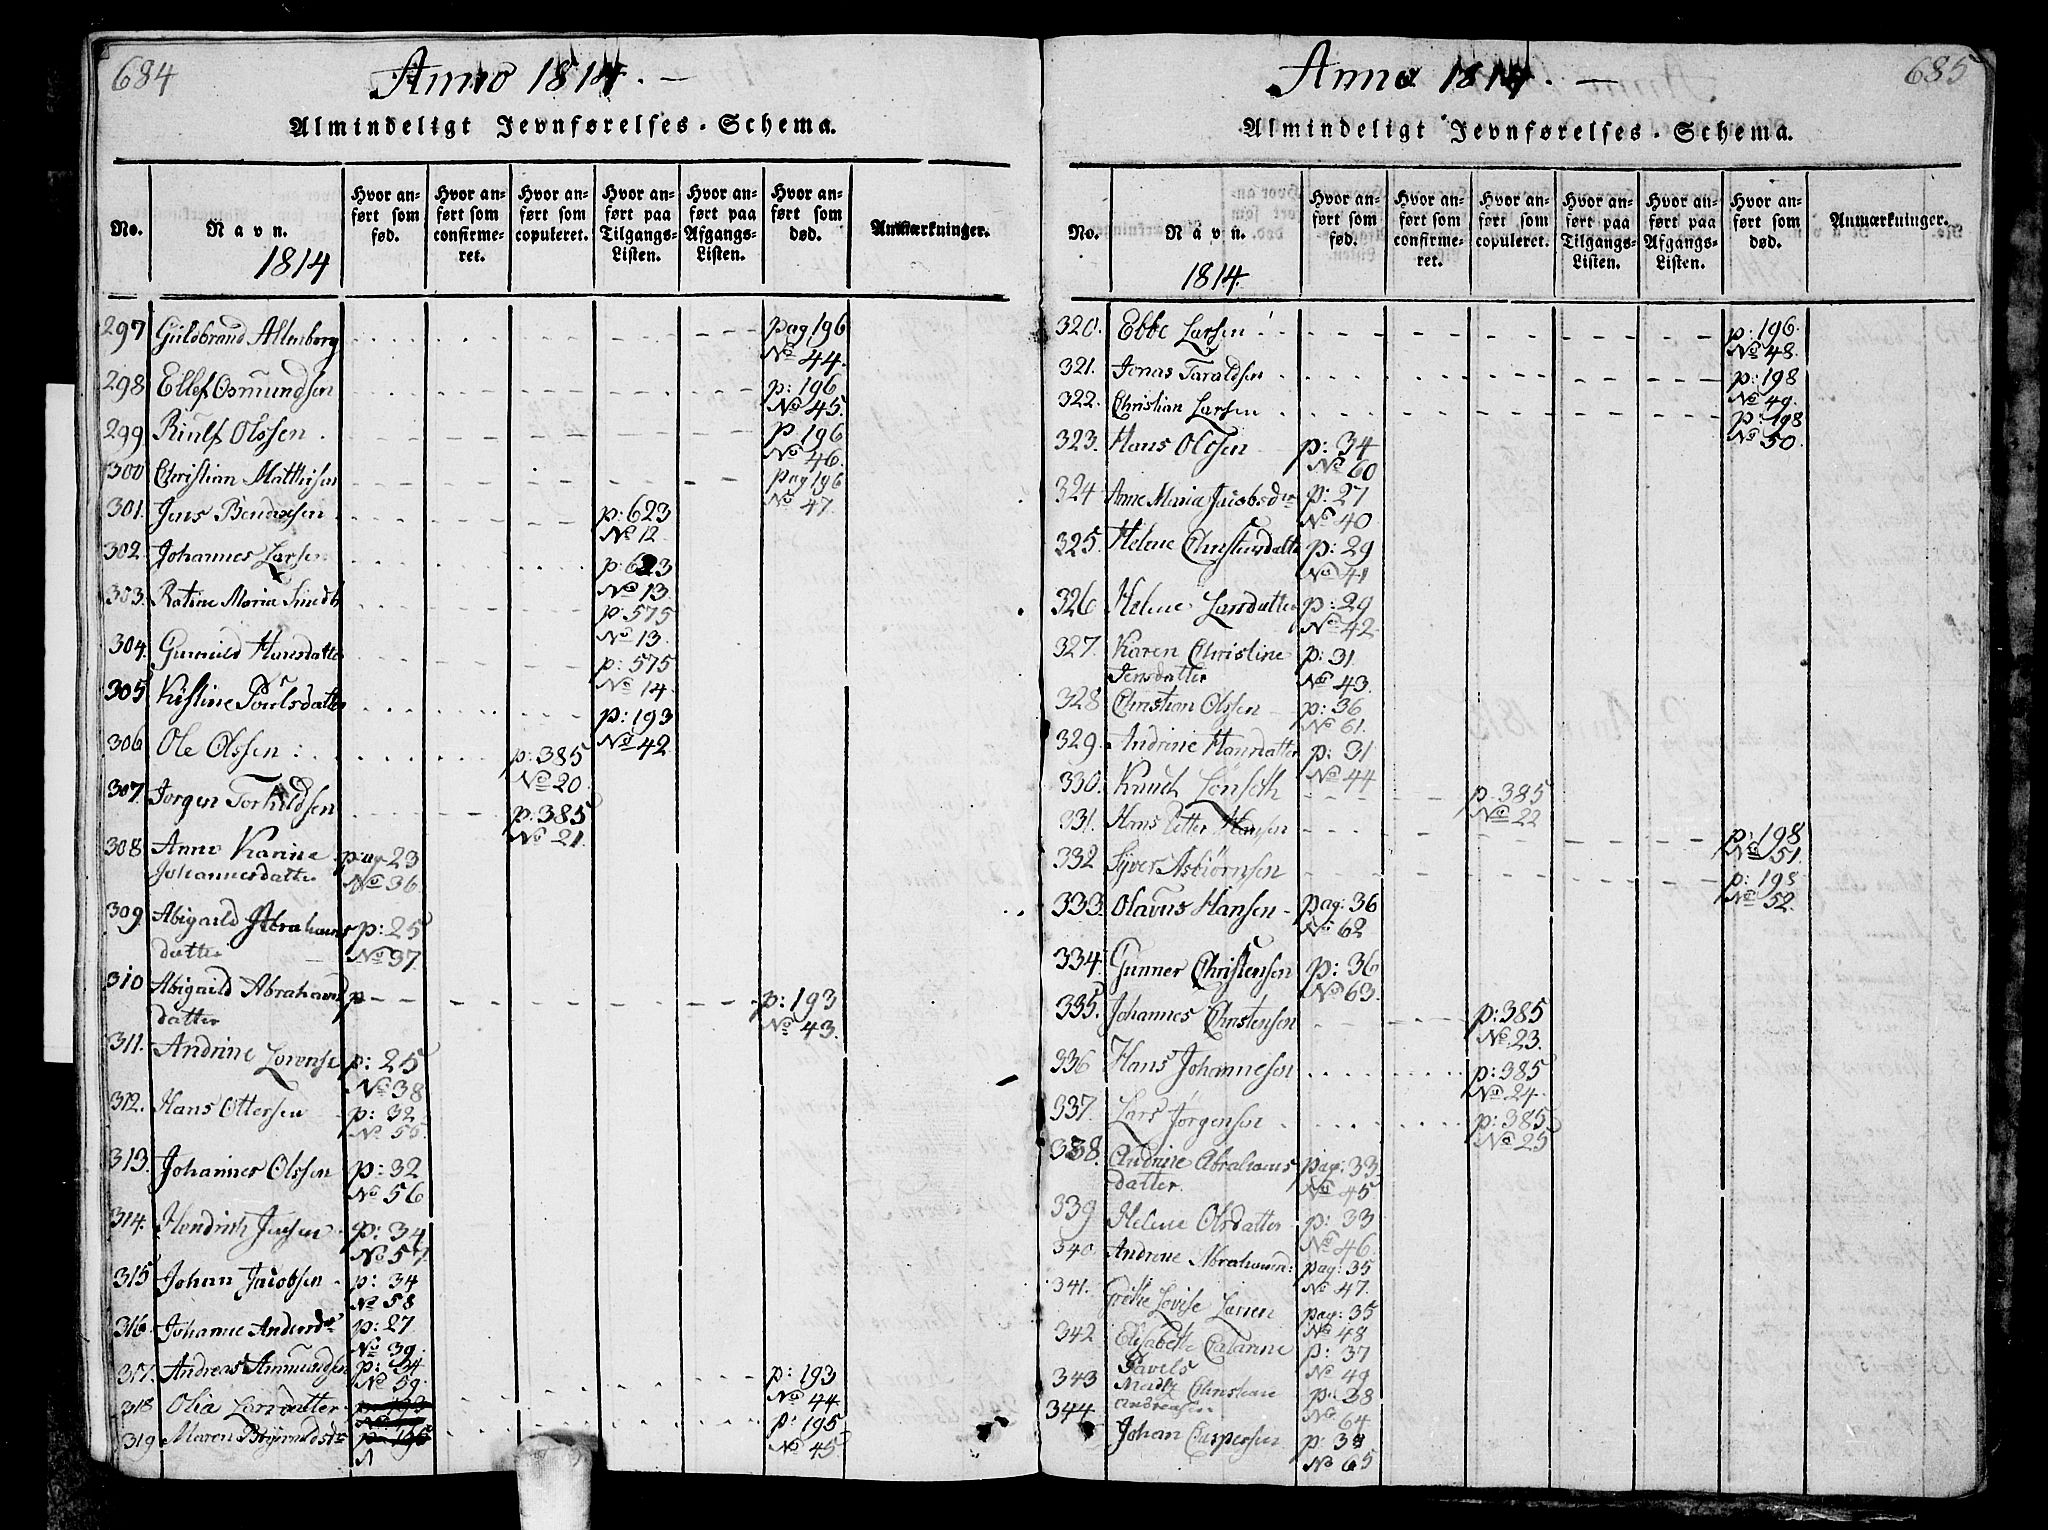 684
Anno 1814. —
Almindeligt Jevnførelses-Schema.
No.
Navn.
1814
Hvor an-
ført som
fød.
Hvor an-
ført som
confirme-
ret.
Hvor an-
ført som
copuleret.
Hvor an-
ført paa
Tilgangs-
Listen.
Hvor an-
ført paa
Afgangs-
Listen.
Hvor an-
ført som
død.
Anmærkninger.
297 Guldbrand Altenborg pag 196
No 44.
298 Ellef Osmundsen p: 196
No 45.
299 Riulf Olssen p 196
No 46.
300 Christian Matthisen pag 196
No 47.
301. Jens Bendixsen p: 623
No 12
302. Johannes Larsen p: 623
No 13
303. Ratine Maria Smedh p: 575
No 13.
304. Gunnild Hansdatter p: 575
No 14.
305 Kistine Poulsdatter p: 193
No 42.
306 Ole Olssen p: 385
No 20.
307. Jørgen Torkildsen p: 385
No 21.
308. Anne Karine pag 23
Johannesdatter No 36.
309. Abigaild Abrahams p: 25
datter No 37.
310 Abigaild Abrahams p— p: 193
datter No 43.
311. Andrine Lorense p: 25
No 38
312. Hans Ottersen p: 32
No 55.
313. Johannes Olssen p: 32
No 56
314. Hendrich Jensen p: 34
No 57.
315 Johan Jacobsen p: 34
No 58
316. Johanne Andersdr p: 27
No 39.
317. Andreas Ammundsen p: 34
No 59.
318 Olia Larsdatter p: 193
No 44
319 Maren p: 195
No 45.
685
Anno 1814. —
Almindeligt Jevnførelses-Schema.
No.
Navn.
1814.
Hvor an-
ført som
fød.
Hvor an-
ført som
confirme-
ret.
Hvor an-
ført som
copuleret.
Hvor an-
ført paa
Tilgangs-
Listen.
Hvor an-
ført paa
Afgangs-
Listen.
Hvor an-
ført som
død.
Anmærkninger.
320. Ebbe Larsen p: 196.
No 48.
321. Jonas Taraldsen p: 198
No 49.
322. Christian Larsen p: 198
No 50.
323. Hans Olssen p: 34
No 60
324 Anne Maria Jacobsdr p: 27
No 40
325. Helene Christensdatter p: 29
No 41
326 Helene Larsdatter p: 29
No 42
327. Karen Christine p: 31.
Jensdatter No 43.
328 Christian Olssen p: 36
No 61.
329. Andrine Hansdatter p: 31
No 44
330. Knud Lønseth p. 385
No 22
331. Hans Petter Hansen p: 198
No 51.
332 Syver Asbiørnsen p: 198
No 52.
333. Olavus Hansen pag: 36
No 62
334. Gunner Christensen p: 36
No 63.
335. Johannes Christensen p: 385
No 23.
336 Hans Johannesen p: 385
No 24.
337. Lars Jørgensen p: 385
No 25
338. Andrine Abrahams pag: 33
datter. No 45
339 Helene Olsdatter p: 33
No 46.
340 Andrine Abrahamsen: pag: 35
No 47.
341. Grethe Lovise Larsen pag: 35
No 48
342 Elisabeth Catarine p: 37
Pavels No 49
343 Christian p: 38
Andreasen No 64
344 Johan Caspersen p: 38
No 65